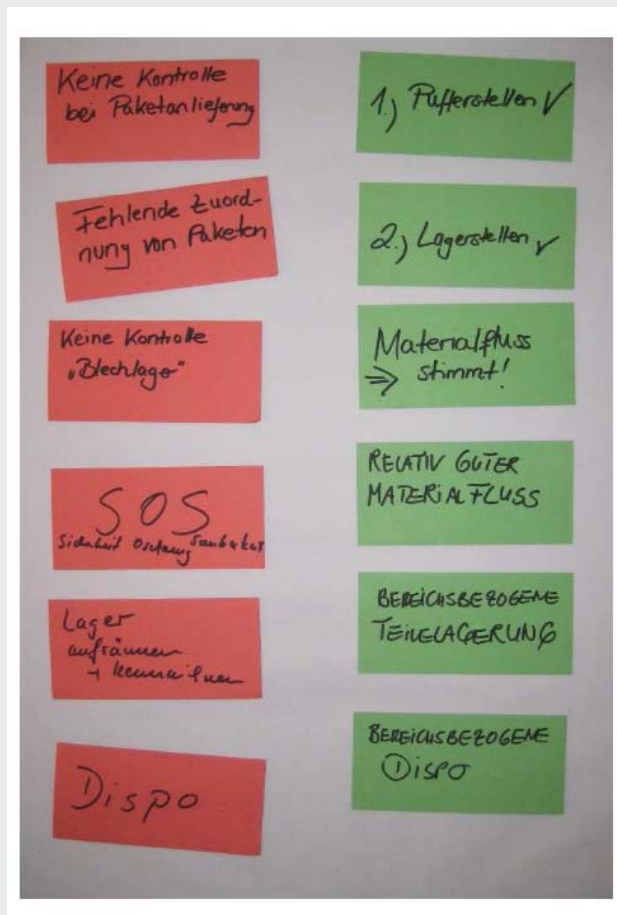 Keine Kontrolle
bei Paketanlieferung
Fehlende Zuord-
nung von Paketen
Keine Kontrolle
„Blechlager"
SOS
Sicherheit Ordnung Sauberkeit
Lager
aufräumen
+ kennzeichnen
Dispo
1.) Pufferstellen ✓
2.) Lagerstellen ✓
Materialfluss
⇒ stimmt!
RELATIV GUTER
MATERIALFLUSS
BEREICHSBEZOGENE
TEILELAGERUNG
BEREICHSBEZOGENE
DISPO